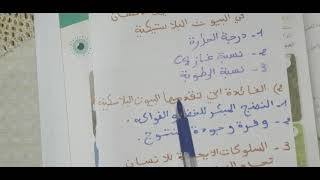 في البيوت البلاستيكية
1- درجة الحرارة
2- نسبة غاز
3- نسبة الرطوبة
2) الفائدة التي تقدمها البيوت البلاستيكية
1- النضج المبكر للخضر و الفواكه.
2- وفرة وجودة المنتوج.
3- السلوكات الإيجابية للانسان